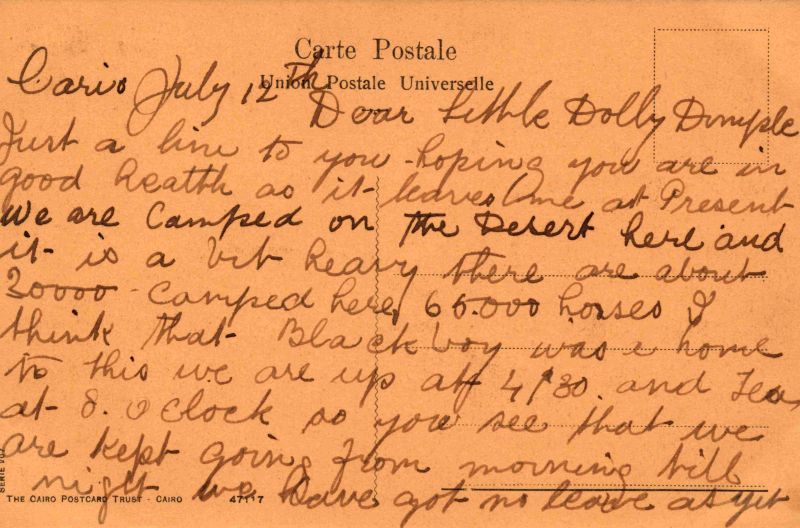 Carte Postale
Union Postale Universelle
Cario July 12th Dear Little Dolly Dimple
Just a line to you hoping you are in
good health as it leaves me at Present
We are Camped on the Desert here and
it is a bit heavy there are about
30000 camped here 65.000 horses I
think that Black boy was a home
to this we are up at 4/30. and Tea
at 8. O Clock so you see that we
are kept going from morning till
night we have got no leave as yet
SERIE
THE CAIRO POSTCARD TRUST - CAIRO 47117